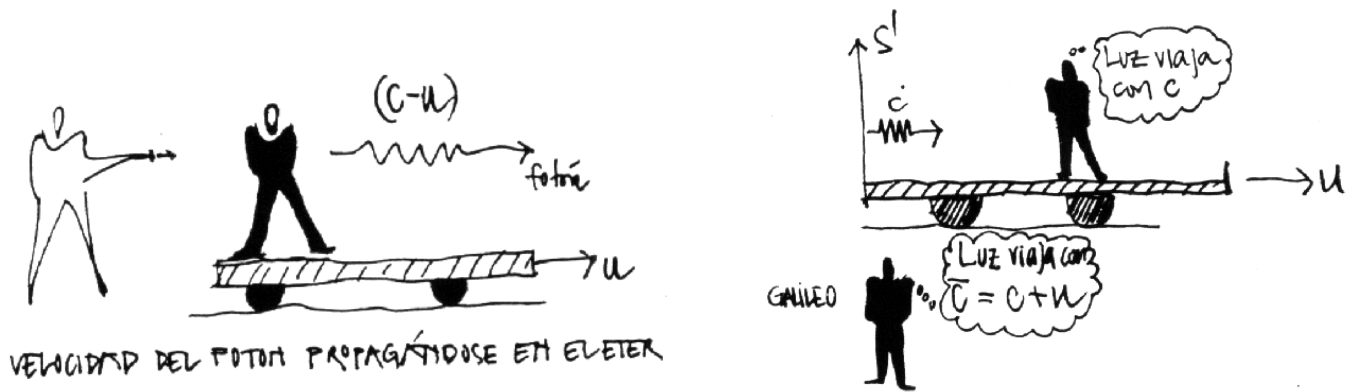 (C-u)
fotón
u
VELOCIDAD DEL FOTON PROPAGÁNDOSE EN EL ETER
S'
Luz viaja
con c
c
u
GALILEO
Luz viaja con
C = C + u